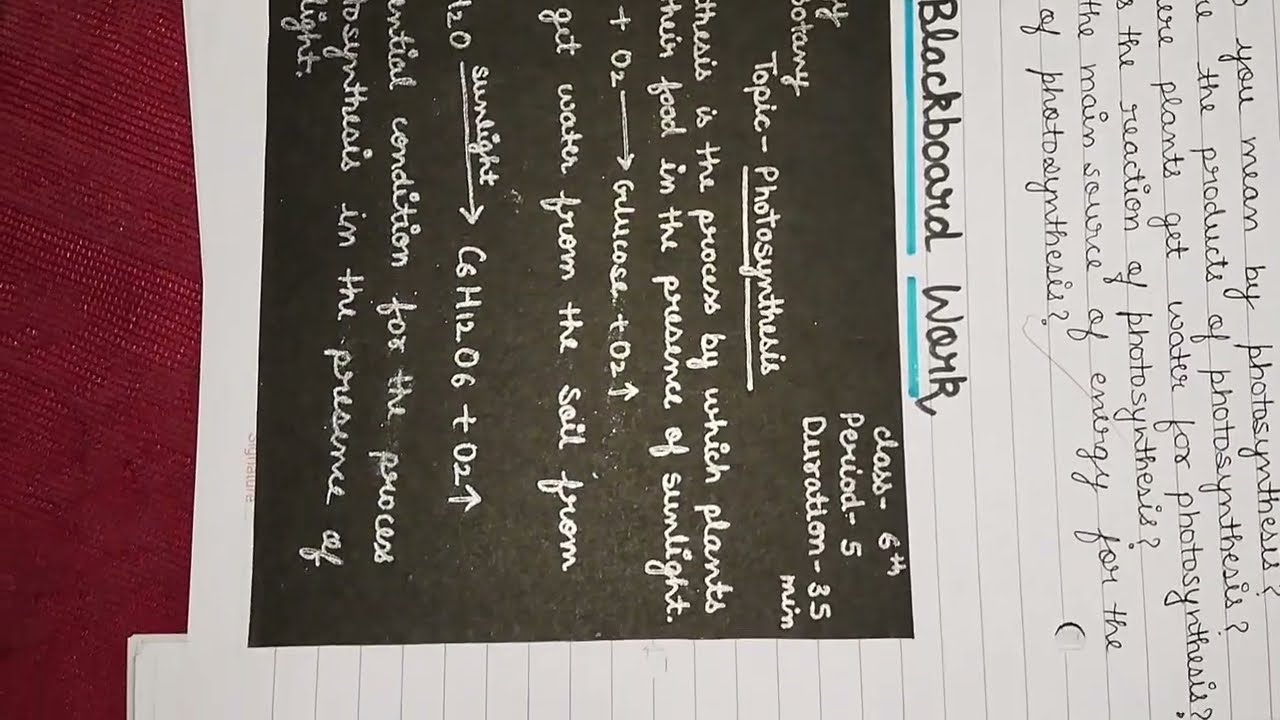 you mean by photosynthesis?
the products of photosynthesis?
plants get water for photosynthesis?
the reaction of photosynthesis?
the main source of energy for the
of photosynthesis?
Blackboard Work
class- 6th
Period- 5
Duration- 35
min
Topic- Photosynthesis
thesis is the process by which plants
their food in the presence of sunlight.
+ O2 → Glucose + O2↑
get water from the soil from
H2O sunlight → C6H12O6 + O2↑
ential condition for the process
tosynthesis in the presence of
light.
Signature